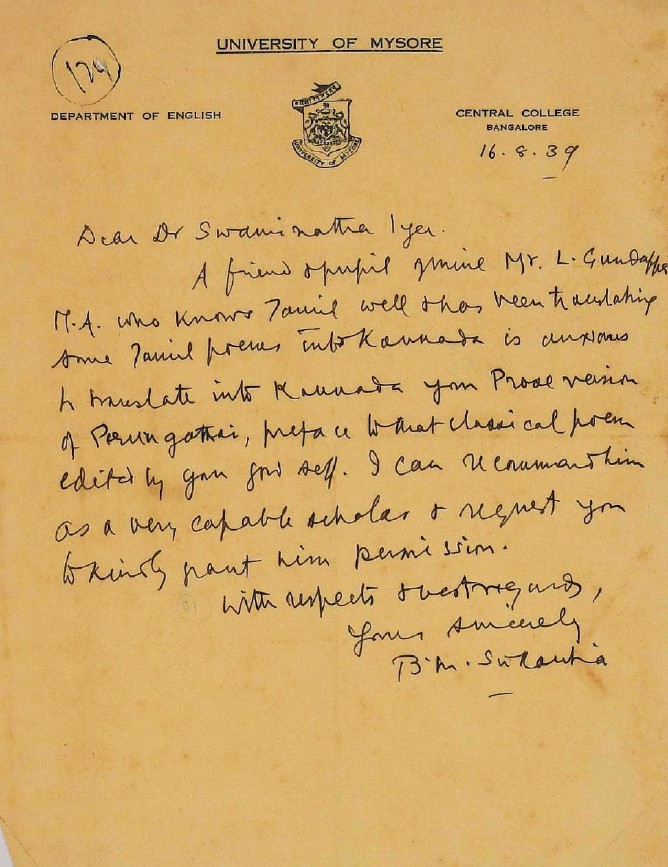 129
UNIVERSITY OF MYSORE
DEPARTMENT OF ENGLISH
CENTRAL COLLEGE
BANGALORE
16.8.39
UNIVERSITY OF MYSORE
Dear Dr Swaminatha Iyer.
A friend & pupil of mine Mr. L. Gundappa
M.A. who knows Tamil well & has been translating
some Tamil poems into Kannada is anxious
to translate into Kannada your Prose version
of Perungathai, preface to that classical poem
edited by your good self. I can recommend him
as a very capable scholar & request you
to kindly grant him permission.
With respects & best regards,
Yours sincerely
B.M. Srikantia